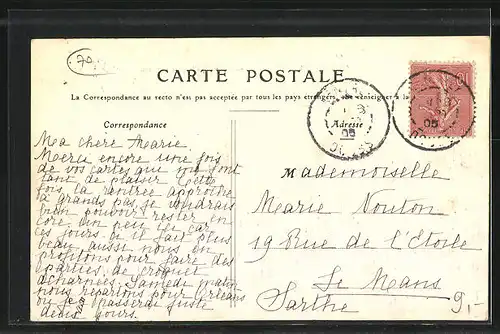 79
CARTE POSTALE
La Correspondance au recto n'est pas acceptée par tous les pays étrangers. Se renseigner à la
Correspondance
Adresse
Ma chère Marie
Merci encore une fois
de vos cartes qui me font
tant de plaisir. Cette
fois la rentrée approche
à grands pas je voudrais
bien pouvoir rester en
core un peu ici car
ces jours ci il fait plus
beau, aussi nous en
profitons pour faire des
parties de croquet
acharnées. Samedi matin
nous repartons pour Orléans
où je passerai juste
deux jours.
Mademoiselle
Marie Nouton
19 Rue de l'Etoile
Le Mans
Sarthe
9.-
05
05
10